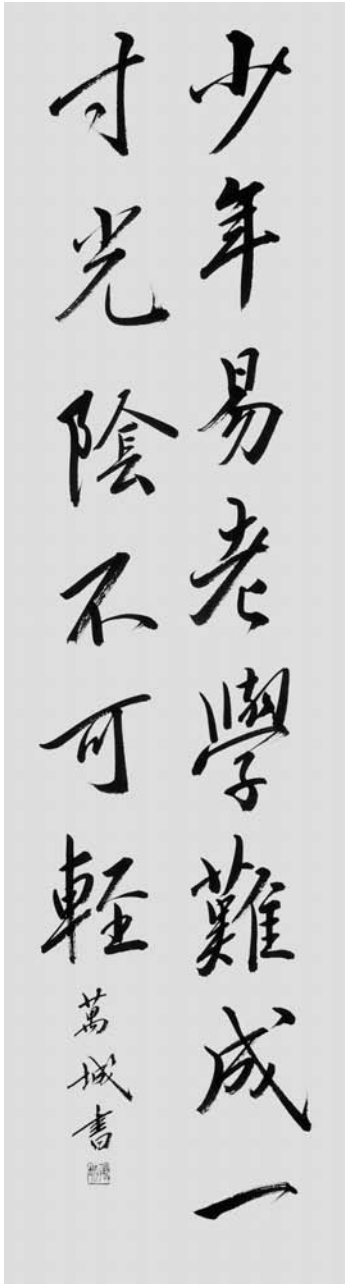 少年易老學難成一
寸光陰不可輕
萬城書